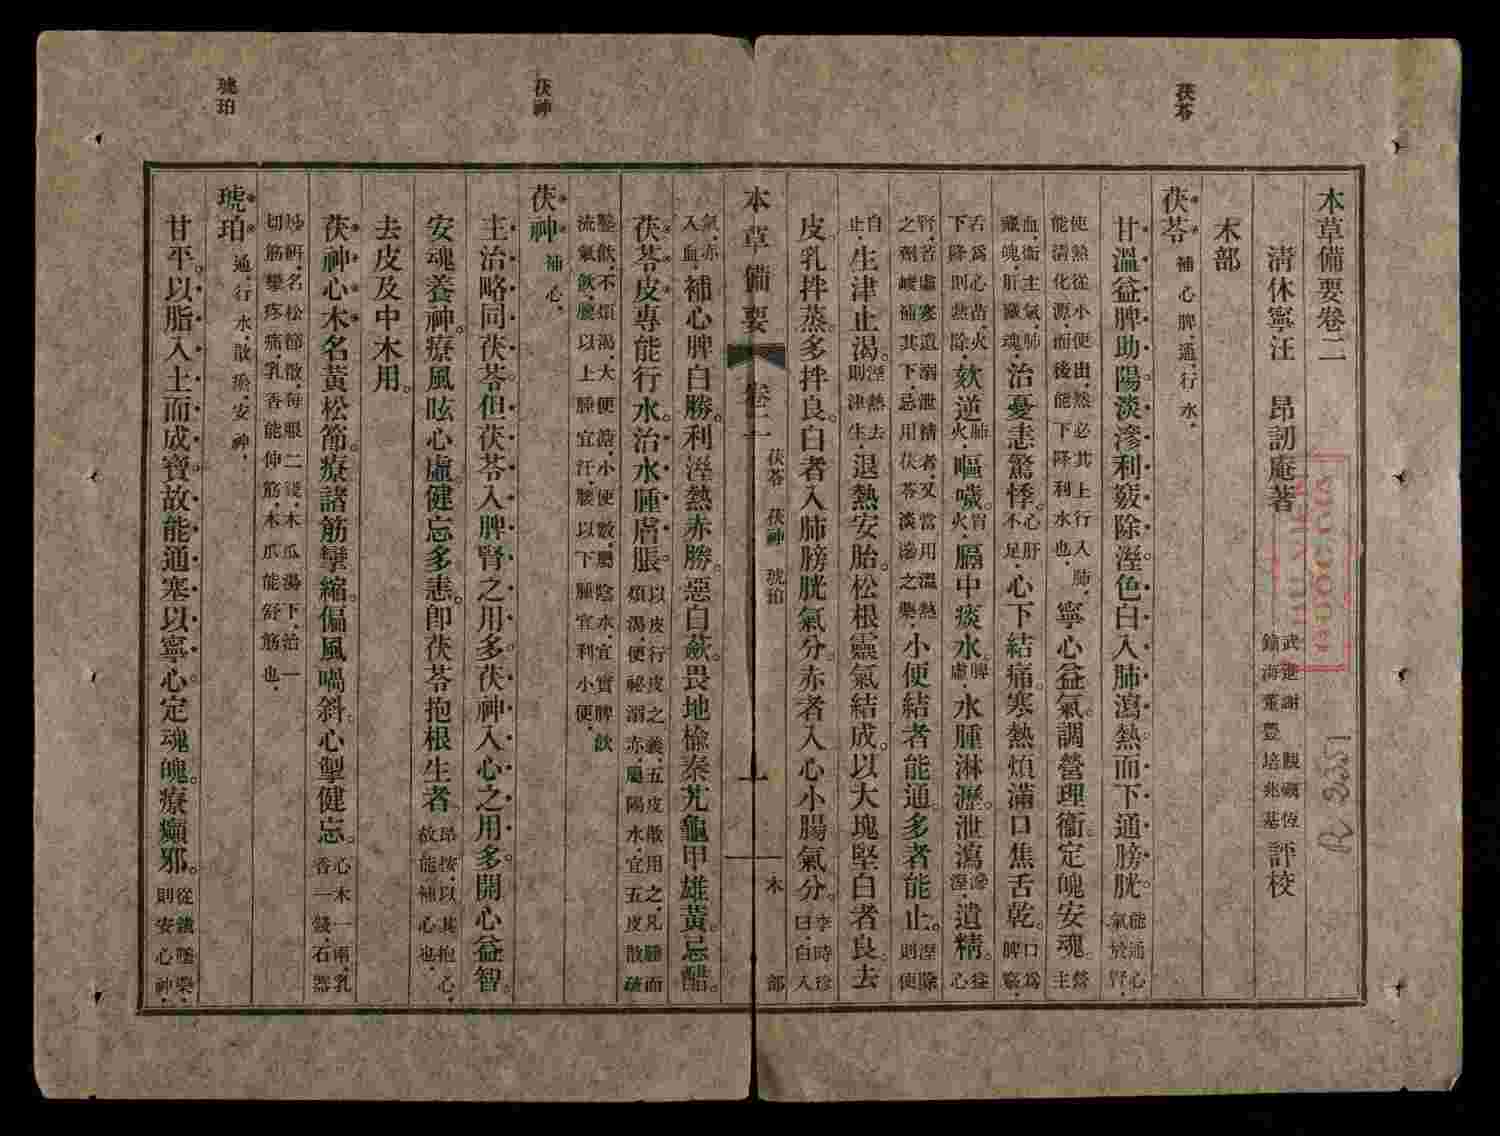 茯苓
茯神
琥珀
本草備要卷二
清休寧汪 昂訒庵著 武進謝 觀礪恆 鎮海董豐培兆基 評校
木部
茯苓 補心脾,通,行水,
甘溫益脾助陽。淡滲利竅除溼。色白入肺瀉熱而下通膀胱。能通心氣於腎,
使熱從小便出,然必其上行入肺,能清化源,而後能下降利水也,寧心益氣。調營理衞。定魄安魂。營主
血,衞主氣,肺藏魄,肝藏魂,治憂恚驚悸。心肝不足,心下結痛。寒熱煩滿。口焦舌乾。口爲脾竅,
舌爲心苗,火下降則熱除,欬逆肺火,嘔噦胃火,膈中痰水。脾虛,水腫淋瀝。泄瀉滲溼,遺精。益心
腎,若虛寒遺溺泄精者,又當用溫熱之劑峻補其下,忌用茯苓淡滲之藥,小便結者能通。多者能止。溼除則便
自止,生津止渴。溼熱去則津生,退熱安胎。松根靈氣結成。以大塊堅白者良。去
皮乳拌蒸。多拌良。白者入肺膀胱氣分。赤者入心小腸氣分。李時珍曰,白入
本草備要 卷二 茯苓 茯神 琥珀 一 木部
氣,赤入血,補心脾白勝。利溼熱赤勝。惡白蘞。畏地榆秦艽龜甲雄黃。忌醋。
茯苓皮專能行水。治水腫膚脹。以皮行皮之義,五皮散用之,凡腫而煩渴,便祕溺赤,屬陽水,宜五皮散疏
鑿飲,不煩渴,大便溏,小便數,屬陰水,宜實脾飲流氣飲,腰以上腫宜汗,腰以下腫宜利小便,
茯神 補心,
主治略同茯苓。但茯苓入脾腎之用多。茯神入心之用多。開心益智。
安魂養神。療風眩心虛。健忘多恚。即茯苓抱根生者 昂按,以其抱心,故能補心也,
去皮及中木用。
茯神心木名黃松節。療諸筋攣縮。偏風喎斜。心掣健忘。心木一兩,乳香一錢,石器
炒研,名松節散,每服二錢,木瓜湯下,治一切筋攣疼痛,乳香能伸筋,木瓜能舒筋也,
琥珀 通,行水,散瘀,安神,
甘平。以脂入土而成寶。故能通塞以寧心。定魂魄。療癲邪。從鎮墜藥,則安心神,
R 2351